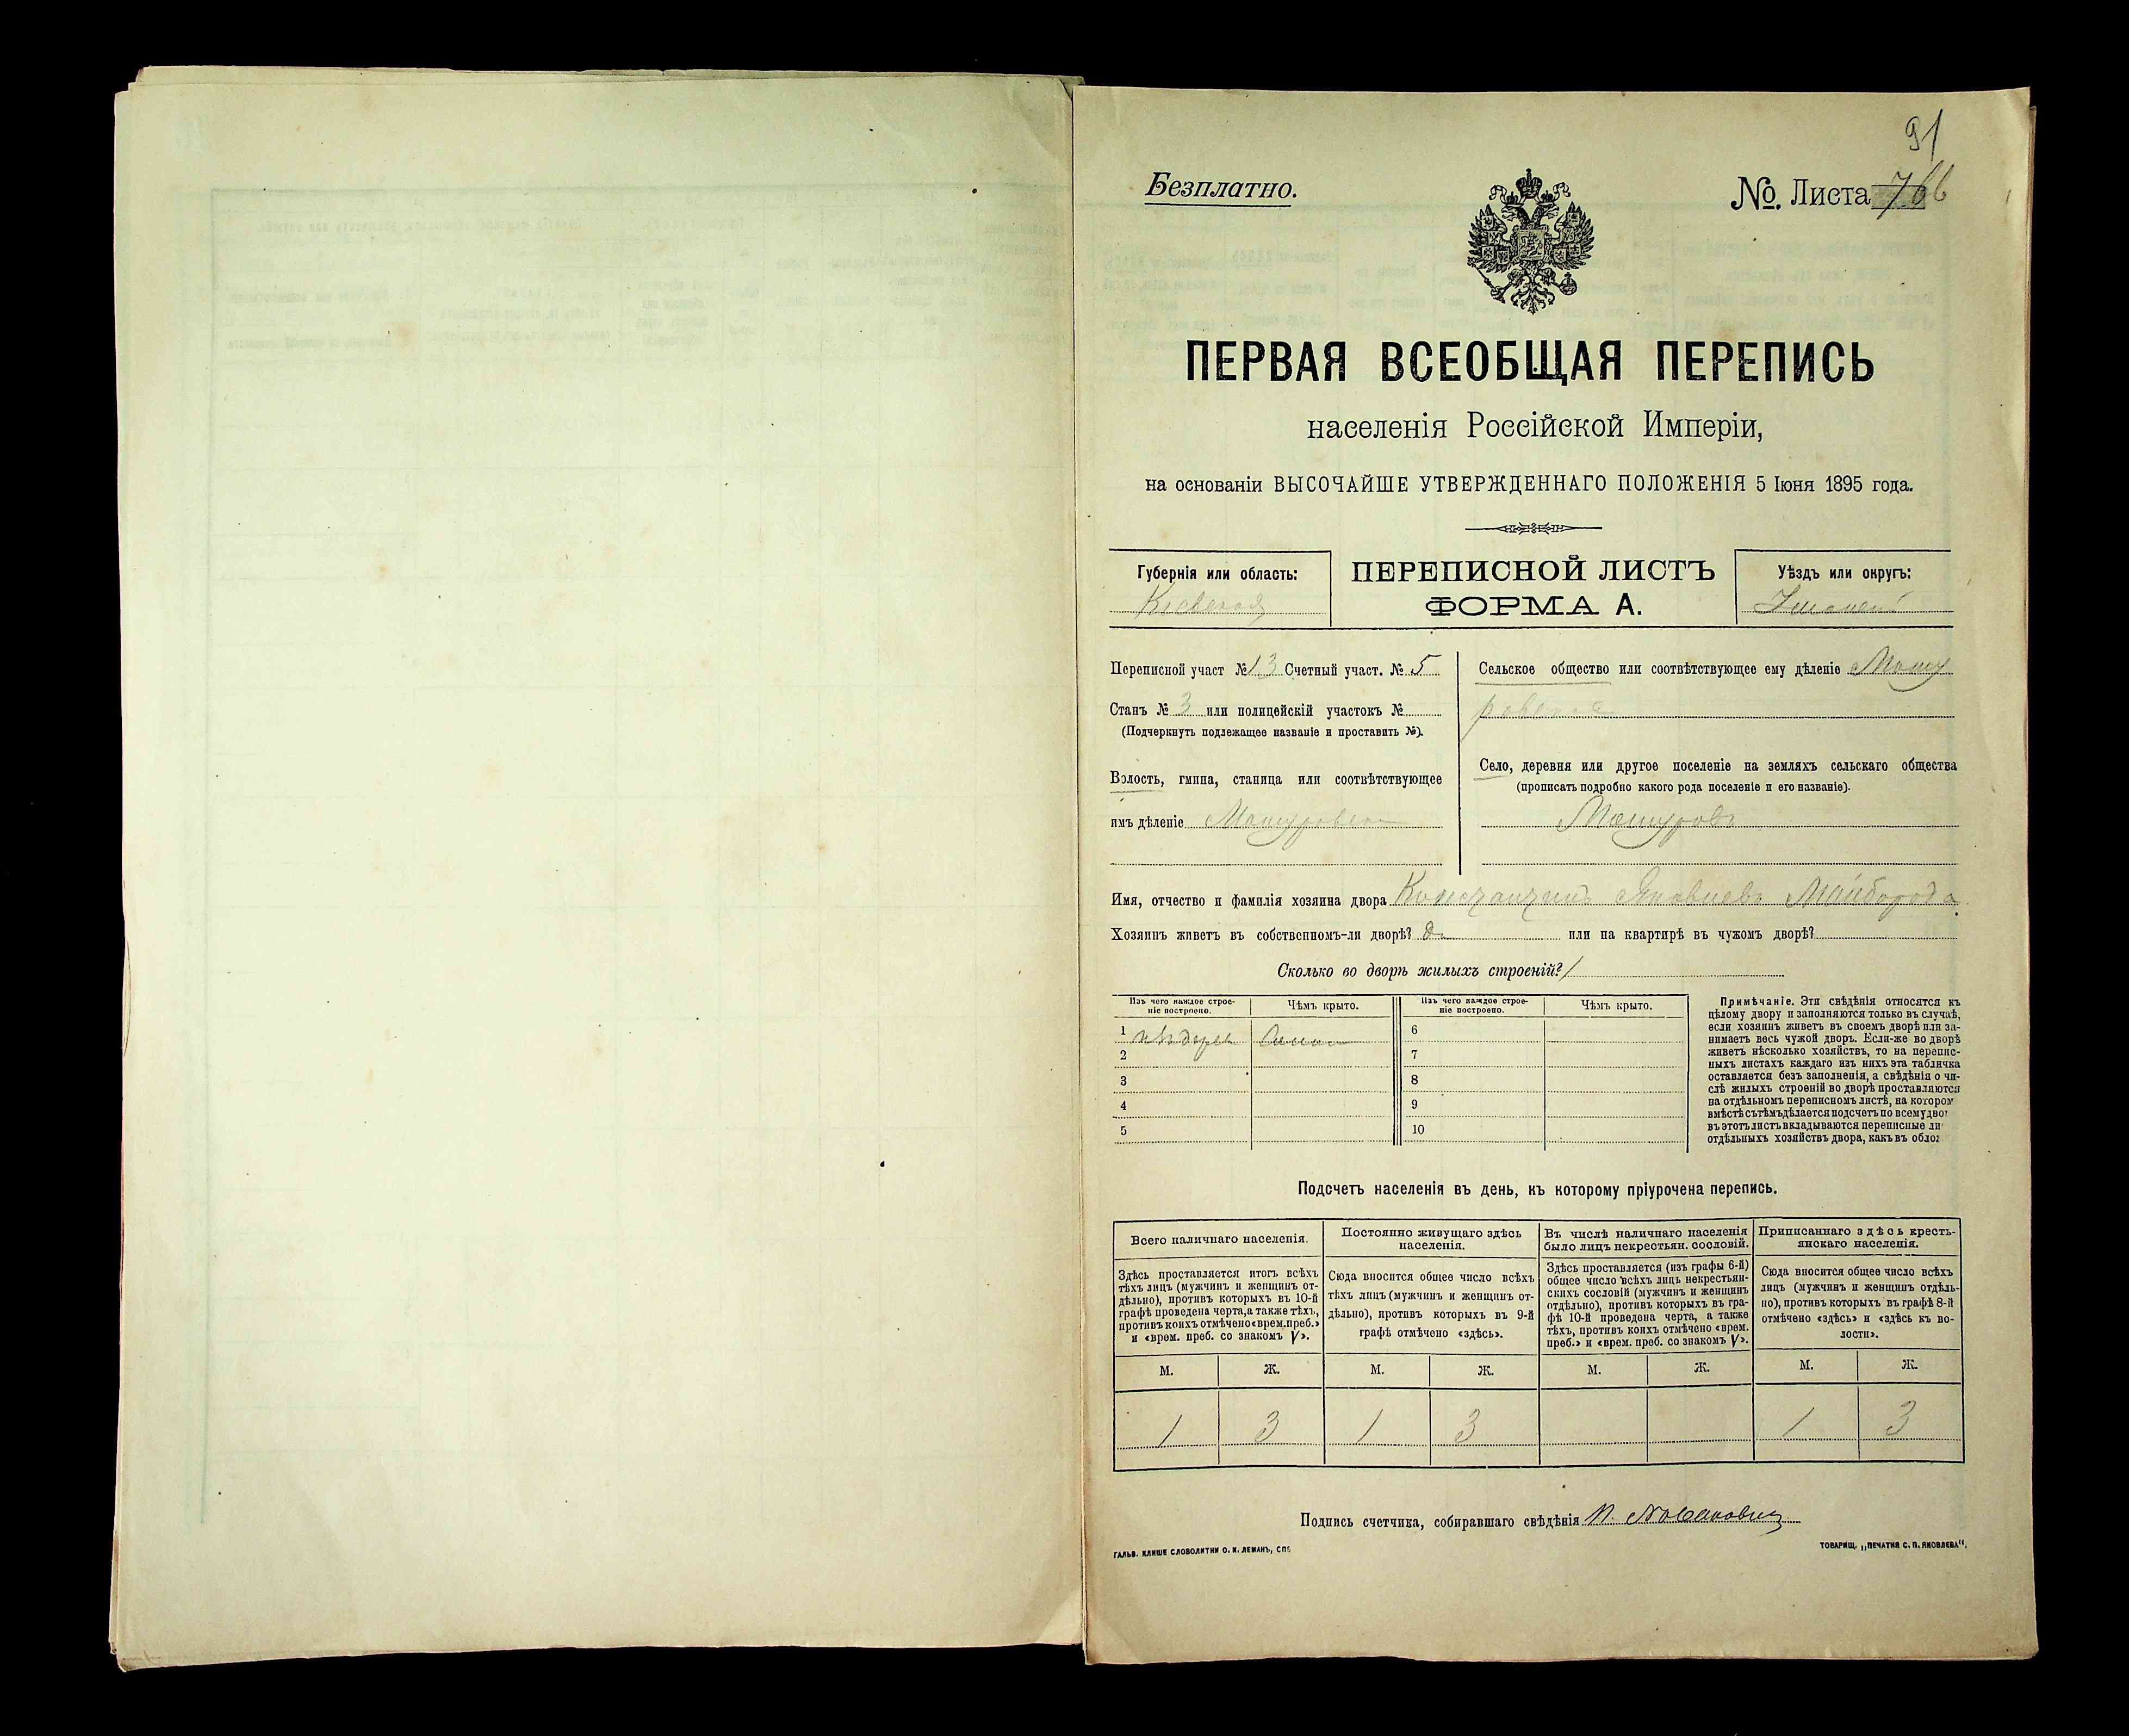 91
Безплатно.
№. Листа 766
ПЕРВАЯ ВСЕОБЩАЯ ПЕРЕПИСЬ
населенія Россійской Имперіи,
на основаніи ВЫСОЧАЙШЕ УТВЕРЖДЕННАГО ПОЛОЖЕНІЯ 5 Іюня 1895 года.
Губернія или область:
Кіевская
ПЕРЕПИСНОЙ ЛИСТЪ
ФОРМА А.
Уѣздъ или округъ:
Уманскій
Переписной участ № 13 Счетный участ. № 5
Станъ № 3 или полицейскій участокъ №
(Подчеркнуть подлежащее названіе и проставить №).
Волость, гмина, станица или соотвѣтствующее
имъ дѣленіе
Сельское общество или соотвѣтствующее ему дѣленіе Машу
ровское
Село, деревня или другое поселеніе на земляхъ сельскаго общества
(прописать подробно какого рода поселеніе и его названіе).
Машуровъ
Имя, отчество и фамилія хозяина двора Константинъ Яковлевъ Майборода
Хозяинъ живетъ въ собственномъ-ли дворѣ? да или на квартирѣ въ чужомъ дворѣ?
Сколько во дворѣ жилыхъ строеній? 1
Изъ чего каждое строе-
ніе построено.
Чѣмъ крыто.
Изъ чего каждое строе-
ніе построено.
Чѣмъ крыто.
1
2
3
4
5
6
7
8
9
10
Примѣчаніе. Эти свѣдѣнія относятся къ
цѣлому двору и заполняются только въ случаѣ,
если хозяинъ живетъ въ своемъ дворѣ или за-
нимаетъ весь чужой дворъ. Если-же во дворѣ
живетъ нѣсколько хозяйствъ, то на перепис-
ныхъ листахъ каждаго изъ нихъ эта табличка
оставляется безъ заполненія, а свѣдѣнія о чи-
слѣ жилыхъ строеній во дворѣ проставляются
на отдѣльномъ переписномъ листѣ, на котором
вмѣстѣ съ тѣмъ дѣлается подсчетъ по всему дво
въ этотъ листъ вкладываются переписные ли
отдѣльныхъ хозяйствъ двора, какъ въ обло
Подсчетъ населенія въ день, къ которому пріурочена перепись.
Всего наличнаго населенія.
Здѣсь проставляется итогъ всѣхъ
тѣхъ лицъ (мужчинъ и женщинъ от-
дѣльно), противъ которыхъ въ 10-й
графѣ проведена черта, а также тѣхъ,
противъ коихъ отмѣчено «врем. преб.»
и «врем. преб. со знакомъ V».
Постоянно живущаго здѣсь
населенія.
Сюда вносится общее число всѣхъ
тѣхъ лицъ (мужчинъ и женщинъ от-
дѣльно), противъ которыхъ въ 9-й
графѣ отмѣчено «здѣсь».
Въ числѣ наличнаго населенія
было лицъ некрестьян. сословій.
Здѣсь проставляется (изъ графы 6-й)
общее число всѣхъ лицъ некрестьян-
скихъ сословій (мужчинъ и женщинъ
отдѣльно), противъ которыхъ въ гра-
фѣ 10-й проведена черта, а также
тѣхъ, противъ коихъ отмѣчено «врем.
преб.» и «врем. преб. со знакомъ V».
Приписаннаго здѣсь кресть-
янскаго населенія.
Сюда вносится общее число всѣхъ
лицъ (мужчинъ и женщинъ отдѣль-
но), противъ которыхъ въ графѣ 8-й
отмѣчено «здѣсь» и «здѣсь къ во-
лости».
М. Ж. М. Ж. М. Ж. М. Ж.
1 3 1 3 1 3
Подпись счетчика, собиравшаго свѣдѣнія
ГАЛЬВ. КЛИШЕ СЛОВОЛИТНИ О. И. ЛЕМАНЪ, СПБ
ТОВАРИЩ. „ПЕЧАТНЯ С. П. ЯКОВЛЕВА“.